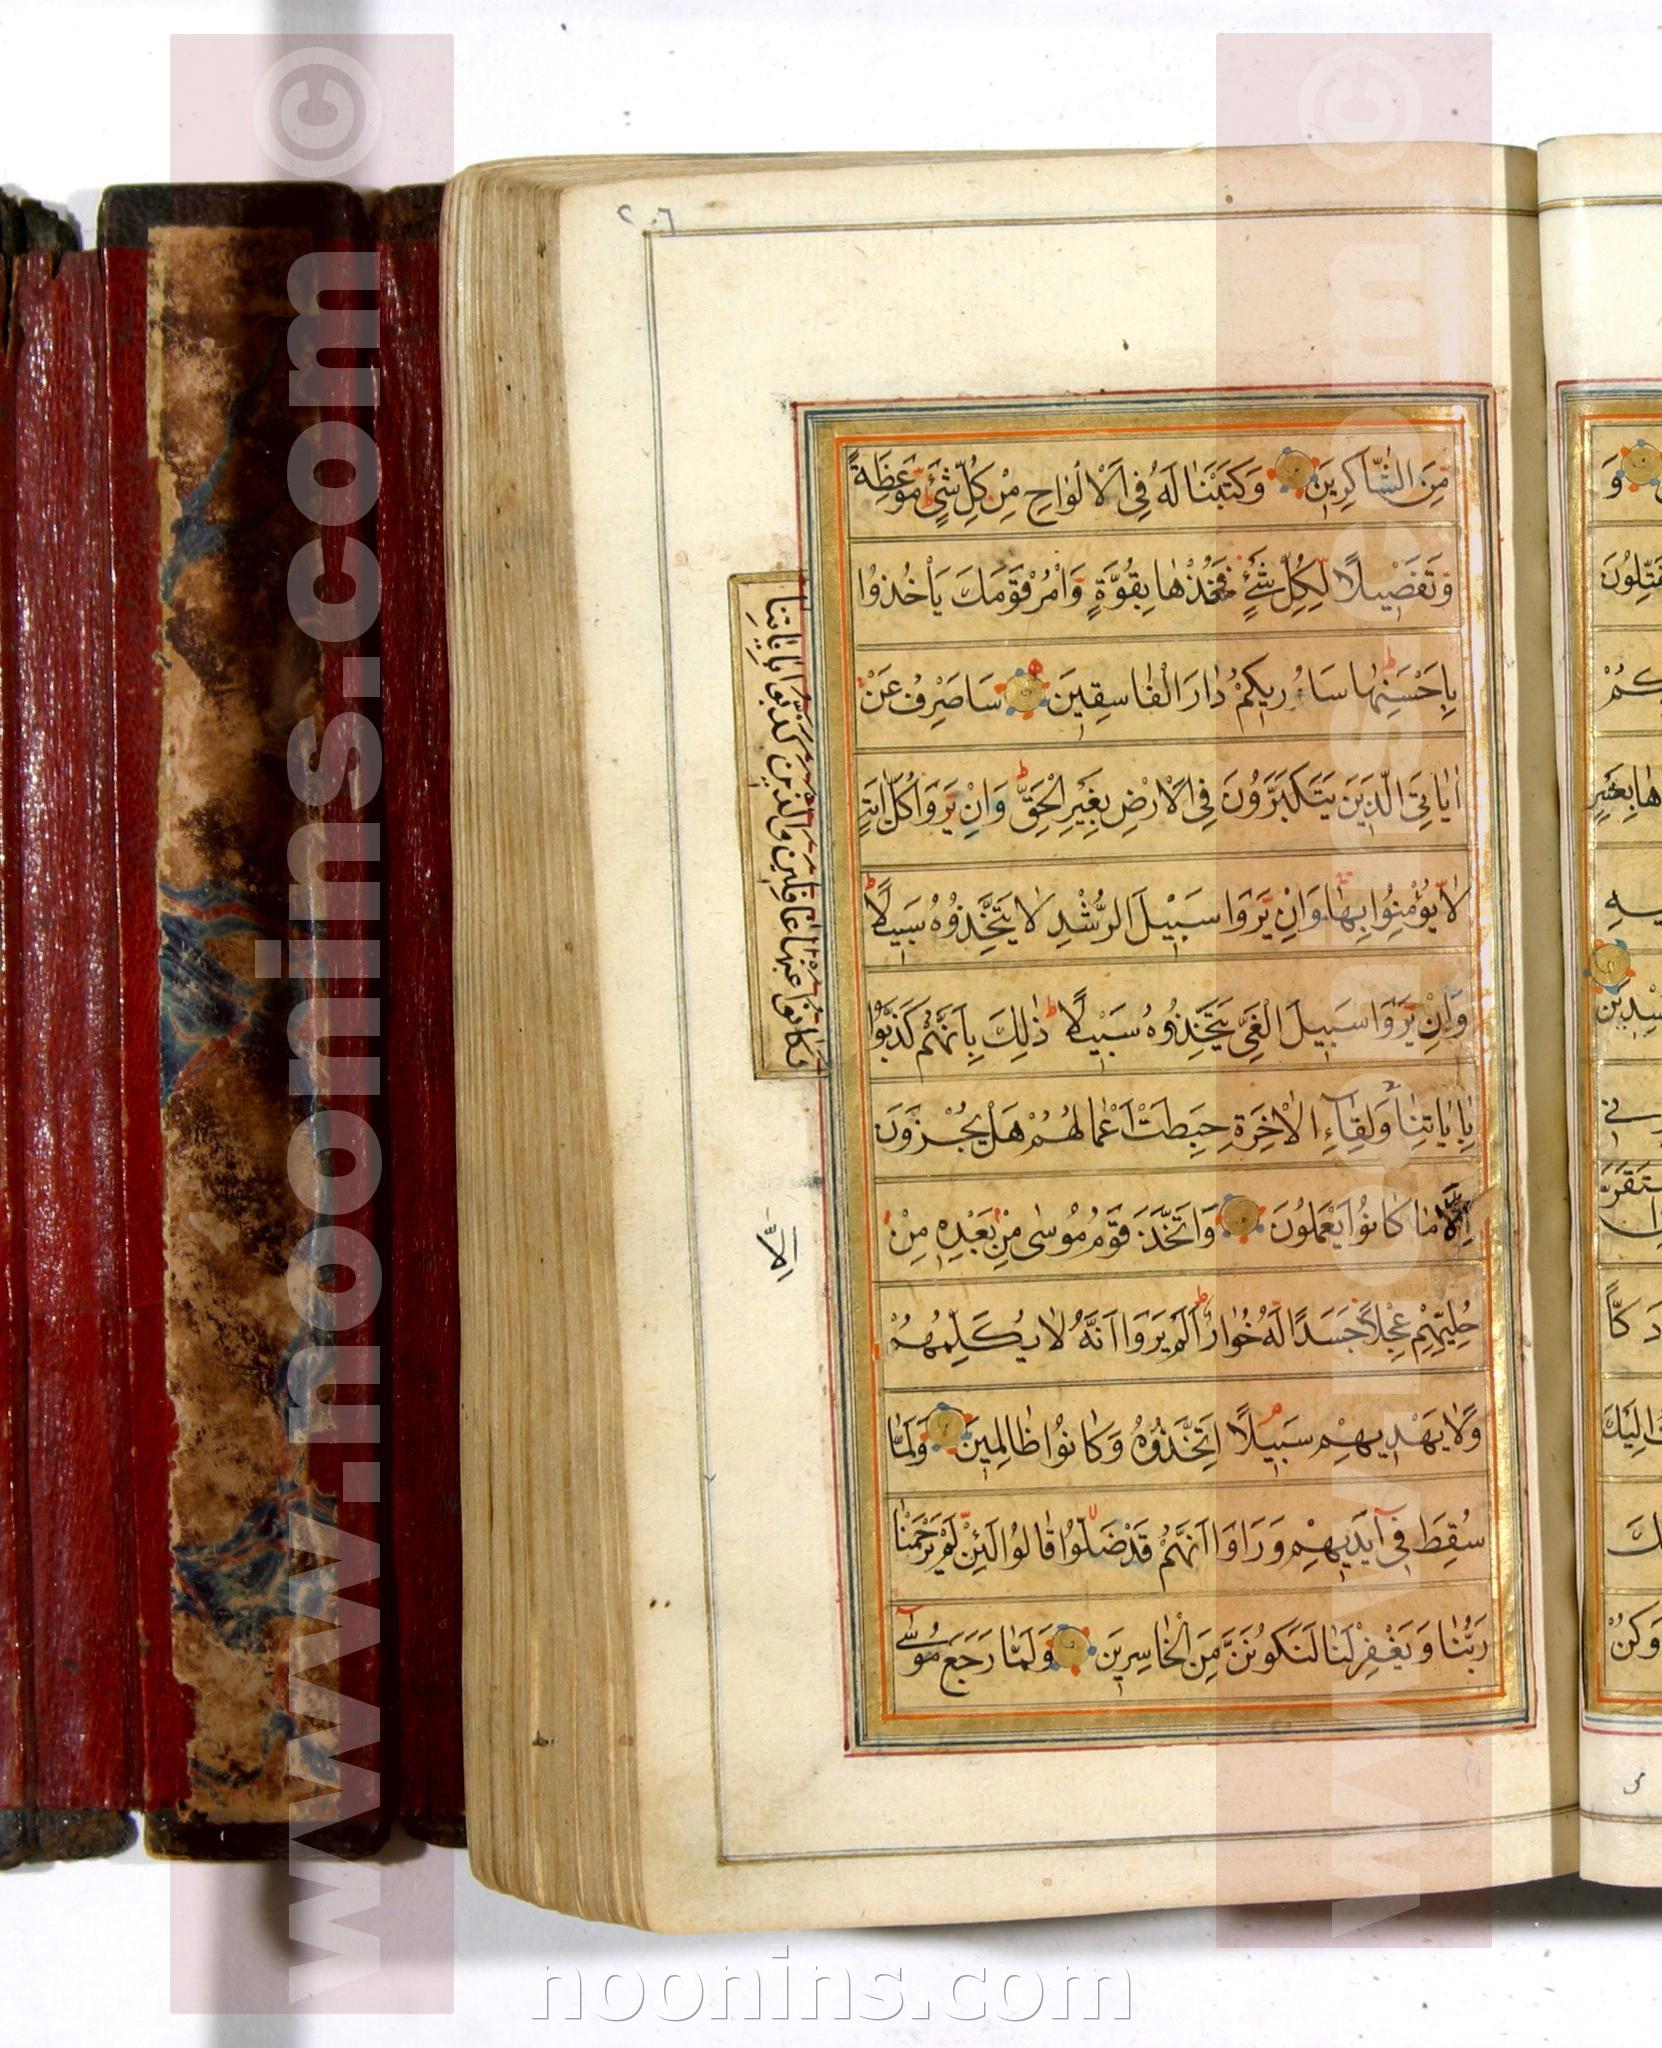 ٢٠٦
مِنَ الشَّاكِرِينَ وَكَتَبْنَا لَهُ فِي الْأَلْوَاحِ مِنْ كُلِّ شَيْءٍ مَوْعِظَةً
وَتَفْصِيلًا لِكُلِّ شَيْءٍ فَخُذْهَا بِقُوَّةٍ وَأْمُرْ قَوْمَكَ يَأْخُذُوا
بِأَحْسَنِهَا سَاُورِيكُمْ دَارَ الْفَاسِقِينَ سَاَصْرِفُ عَنْ
اٰيَاتِيَ الَّذِينَ يَتَكَبَّرُونَ فِي الْأَرْضِ بِغَيْرِ الْحَقِّ وَاِنْ يَرَوْا كُلَّ اٰيَةٍ
لَا يُؤْمِنُوا بِهَا وَاِنْ يَرَوْا سَبِيلَ الرُّشْدِ لَا يَتَّخِذُوهُ سَبِيلًا
وَاِنْ يَرَوْا سَبِيلَ الْغَيِّ يَتَّخِذُوهُ سَبِيلًا ذٰلِكَ بِاَنَّهُمْ كَذَّبُوا
بِاٰيَاتِنَا وَلِقَاءِ الْاٰخِرَةِ حَبِطَتْ اَعْمَالُهُمْ هَلْ يُجْزَوْنَ
اِلَّا مَا كَانُوا يَعْمَلُونَ وَاتَّخَذَ قَوْمُ مُوسٰى مِنْ بَعْدِهِ مِنْ
حُلِيِّهِمْ عِجْلًا جَسَدًا لَهُ خُوَارٌ اَلَمْ يَرَوْا اَنَّهُ لَا يُكَلِّمُهُمْ
وَلَا يَهْدِيهِمْ سَبِيلًا اِتَّخَذُوهُ وَكَانُوا ظَالِمِينَ وَلَمَّا
سُقِطَ فِي اَيْدِيهِمْ وَرَاَوْا اَنَّهُمْ قَدْ ضَلُّوا قَالُوا لَئِنْ لَمْ يَرْحَمْنَا
رَبُّنَا وَيَغْفِرْ لَنَا لَنَكُونَنَّ مِنَ الْخَاسِرِينَ وَلَمَّا رَجَعَ مُوسٰى
كَذَّبُوا بِاٰيَاتِنَا
وَكَانُوا عَنْهَا غَافِلِينَ وَالَّذِينَ
اِلَّا
وَ
يَقْتُلُونَ
دَكًّا
اِلَيْكَ
وَكُنْ
www.noonins.com ©
www.noonins.com ©
noonins.com